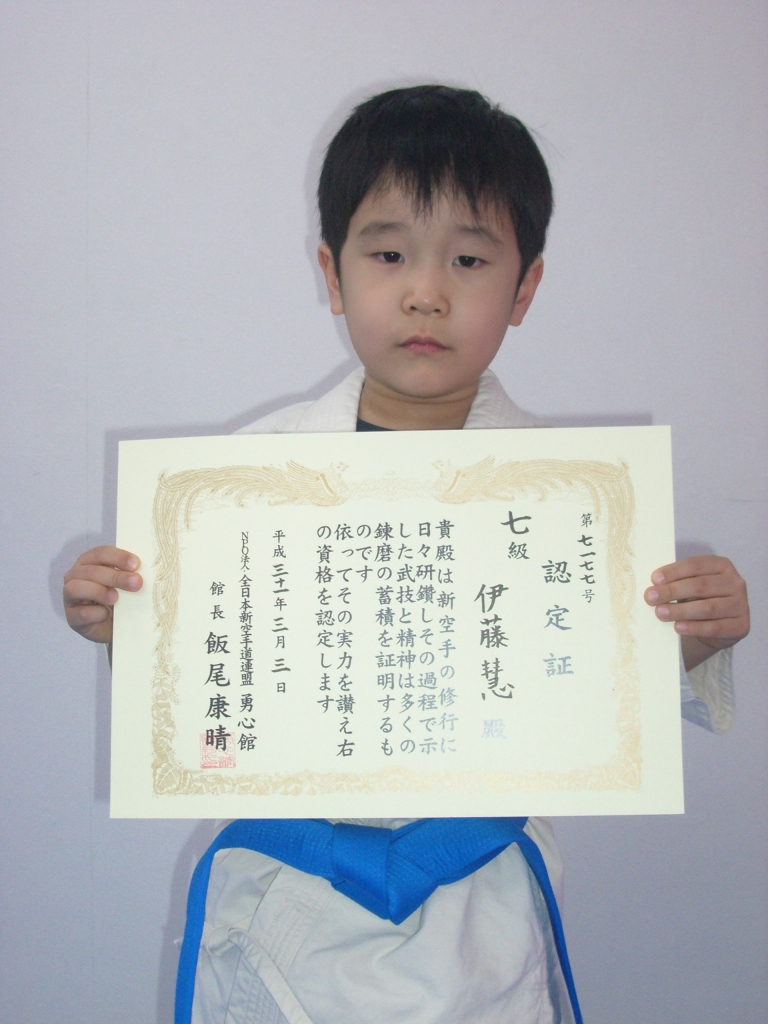 第七一七七号
認定証
七級
伊藤慧殿
貴殿は新空手の修行に
日々研鑽しその過程で示
した武技と精神は多くの
錬磨の蓄積を証明するも
のです
依ってその実力を讃え右
の資格を認定します
平成三十一年三月三日
NPO法人全日本新空手道連盟 勇心館
館長 飯尾康晴